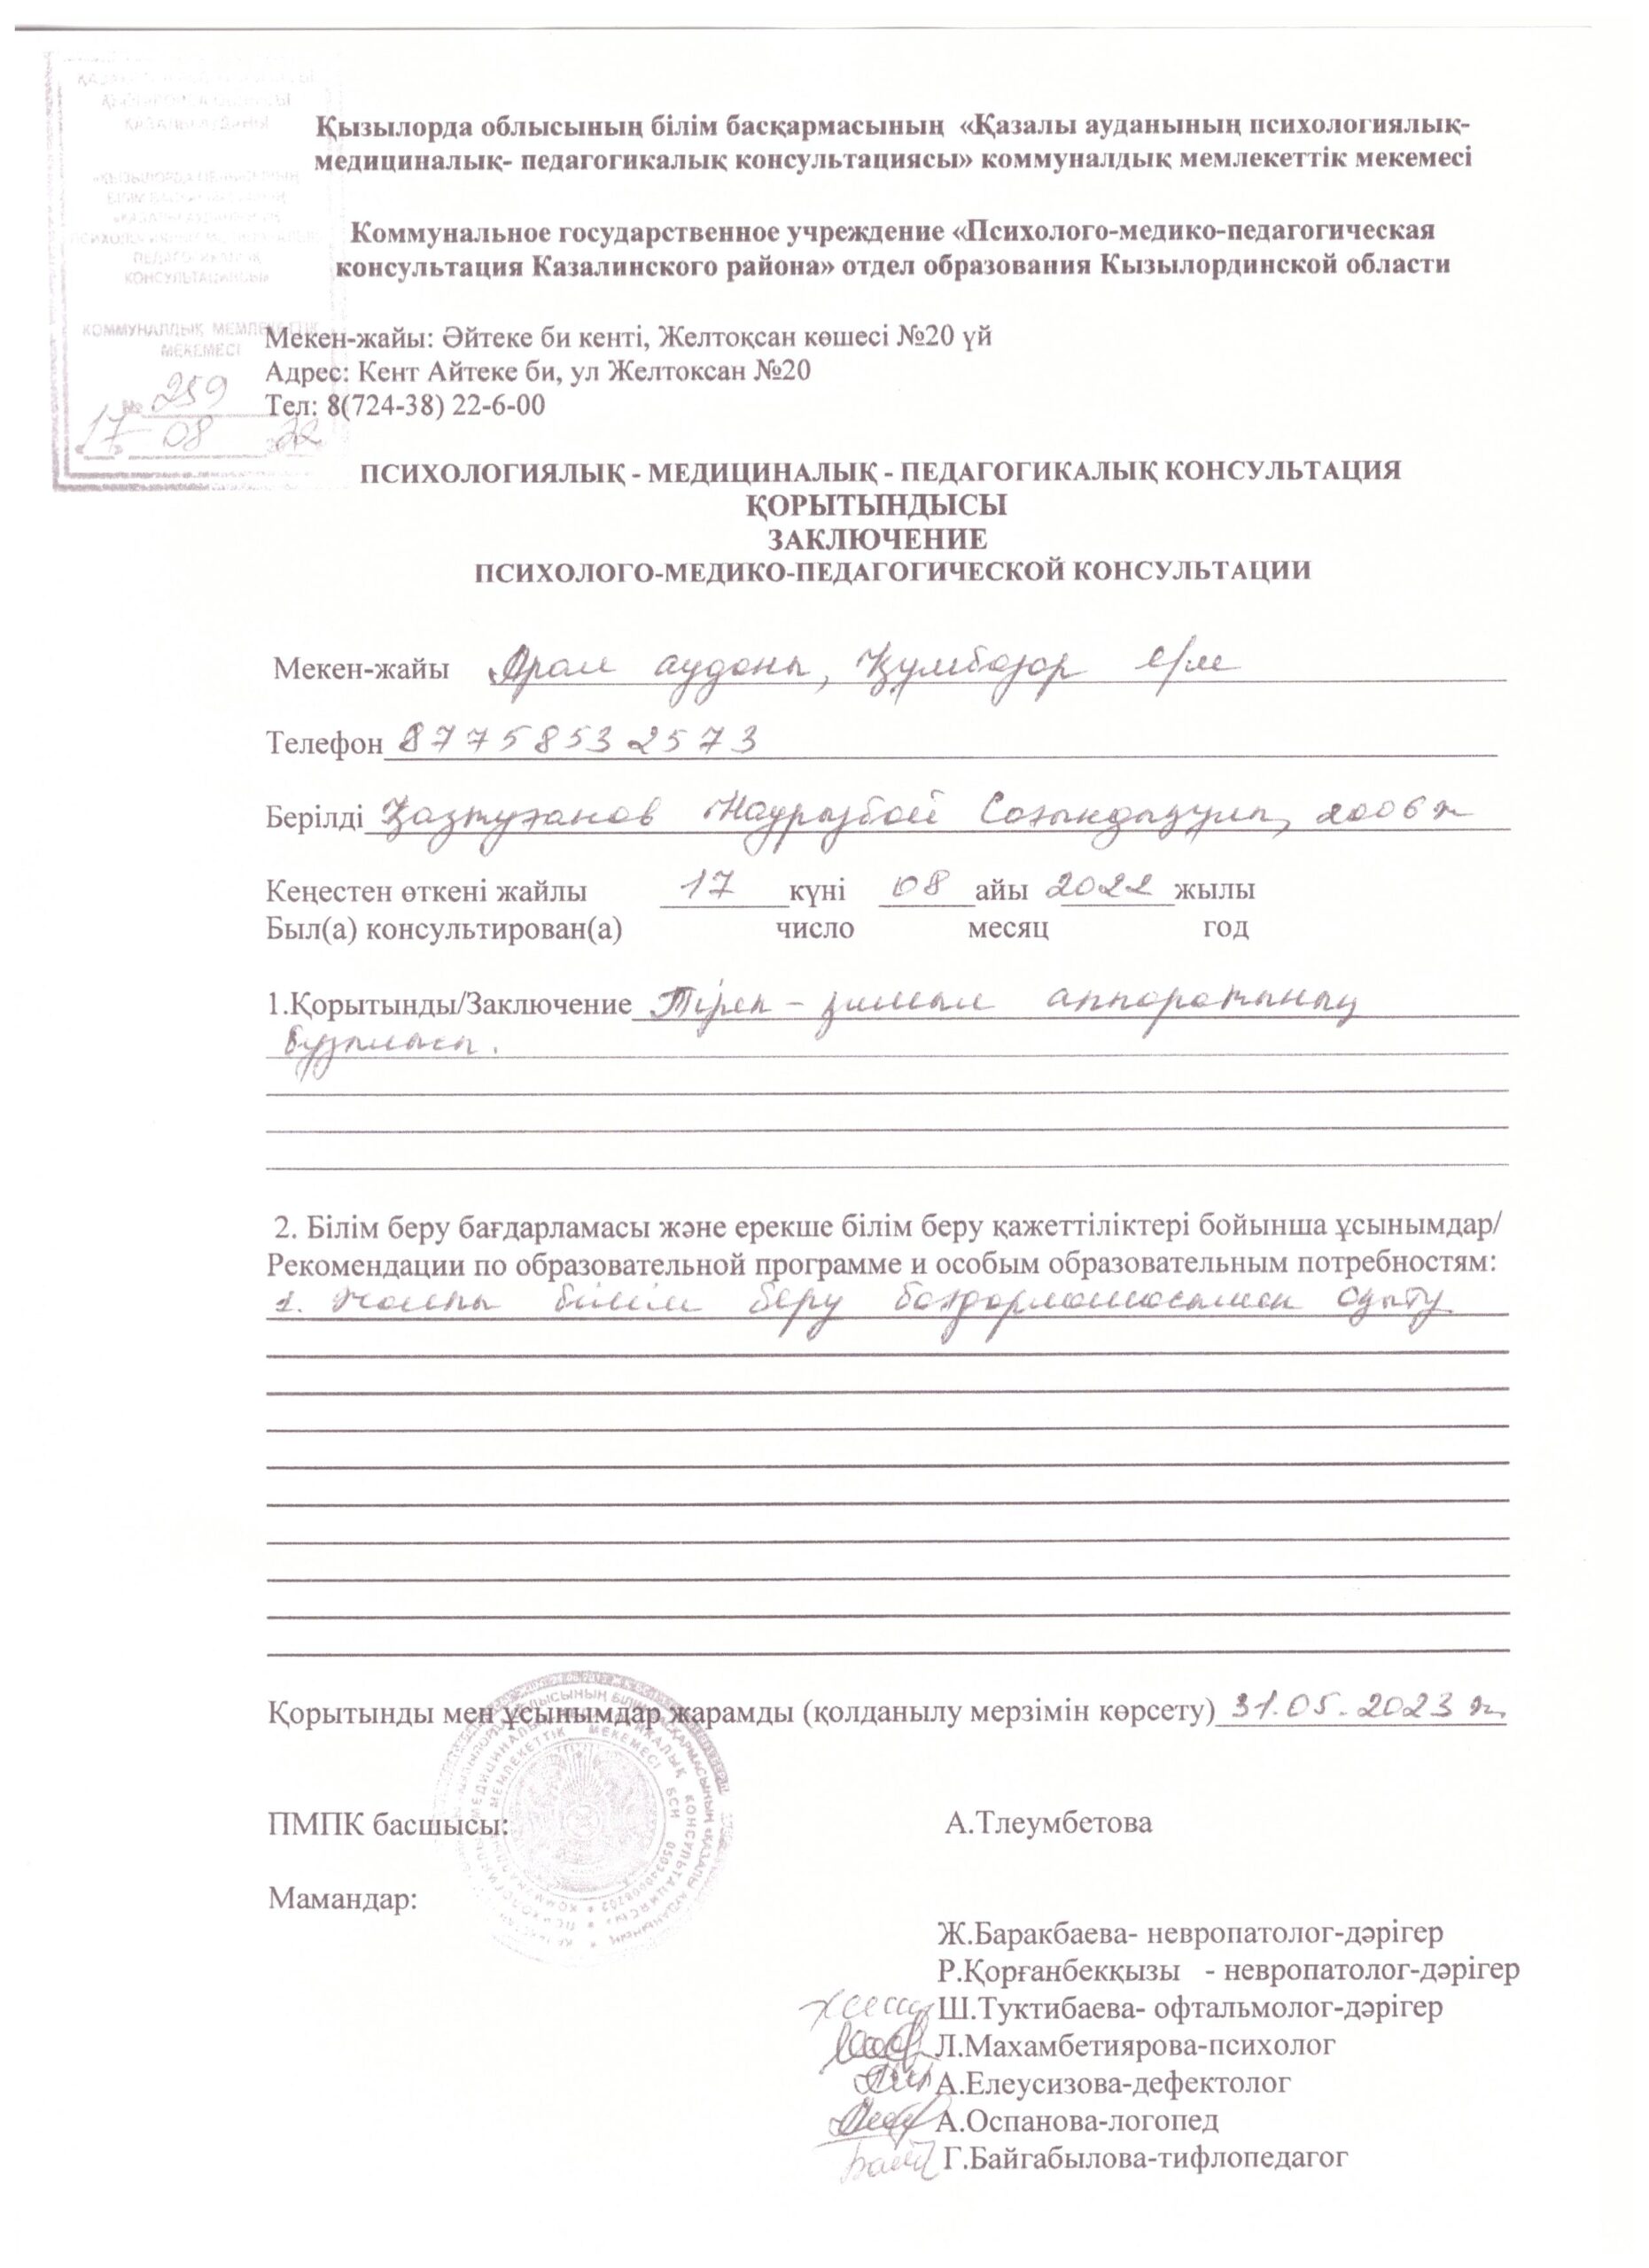 ҚАЗАЛЫ АУДАНЫ
«ҚЫЗЫЛОРДА ОБЛЫСЫНЫҢ
БІЛІМ БАСҚАРМАСЫНЫҢ
«ҚАЗАЛЫ АУДАНЫНЫҢ
ПЕДАГОГИКАЛЫҚ
КОНСУЛЬТАЦИЯСЫ»
КОММУНАЛДЫҚ МЕМЛЕКЕТТІК
МЕКЕМЕСІ
№ 259
17 08 22
Қызылорда облысының білім басқармасының «Қазалы ауданының психологиялық-
медициналық- педагогикалық консультациясы» коммуналдық мемлекеттік мекемесі
Коммунальное государственное учреждение «Психолого-медико-педагогическая
консультация Казалинского района» отдел образования Кызылординской области
Мекен-жайы: Әйтеке би кенті, Желтоқсан көшесі №20 үй
Адрес: Кент Айтеке би, ул Желтоксан №20
Тел: 8(724-38) 22-6-00
ПСИХОЛОГИЯЛЫҚ - МЕДИЦИНАЛЫҚ - ПЕДАГОГИКАЛЫҚ КОНСУЛЬТАЦИЯ
ҚОРЫТЫНДЫСЫ
ЗАКЛЮЧЕНИЕ
ПСИХОЛОГО-МЕДИКО-ПЕДАГОГИЧЕСКОЙ КОНСУЛЬТАЦИИ
Мекен-жайы Арал ауданы, Құмбазар е/м
Телефон 87758532573
Берілді Қазтуғанов Наурызбай 2006ж
Кеңестен өткені жайлы 17 күні 08 айы 2022 жылы
Был(а) консультирован(а) число месяц год
1.Қорытынды/Заключение Тірек - қимыл аппаратының
бұзылысы.
2. Білім беру бағдарламасы және ерекше білім беру қажеттіліктері бойынша ұсынымдар/
Рекомендации по образовательной программе и особым образовательным потребностям:
1. Жалпы білім беру бағдарламасымен оқыту
Қорытынды мен ұсынымдар жарамды (қолданылу мерзімін көрсету) 31.05.2023 ж.
ПМПК басшысы: А.Тлеумбетова
Мамандар:
Ж.Баракбаева- невропатолог-дәрігер
Р.Қорғанбекқызы - невропатолог-дәрігер
Ш.Туктибаева- офтальмолог-дәрігер
Л.Махамбетиярова-психолог
А.Елеусизова-дефектолог
А.Оспанова-логопед
Г.Байгабылова-тифлопедагог